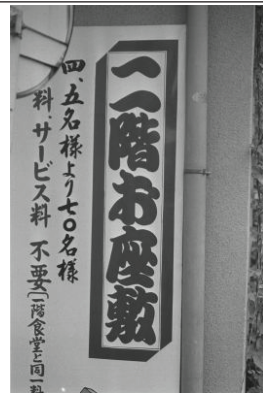 二階お座敷
四、五名様より七〇名様
料、サービス料 不要〔一階食堂と同一料